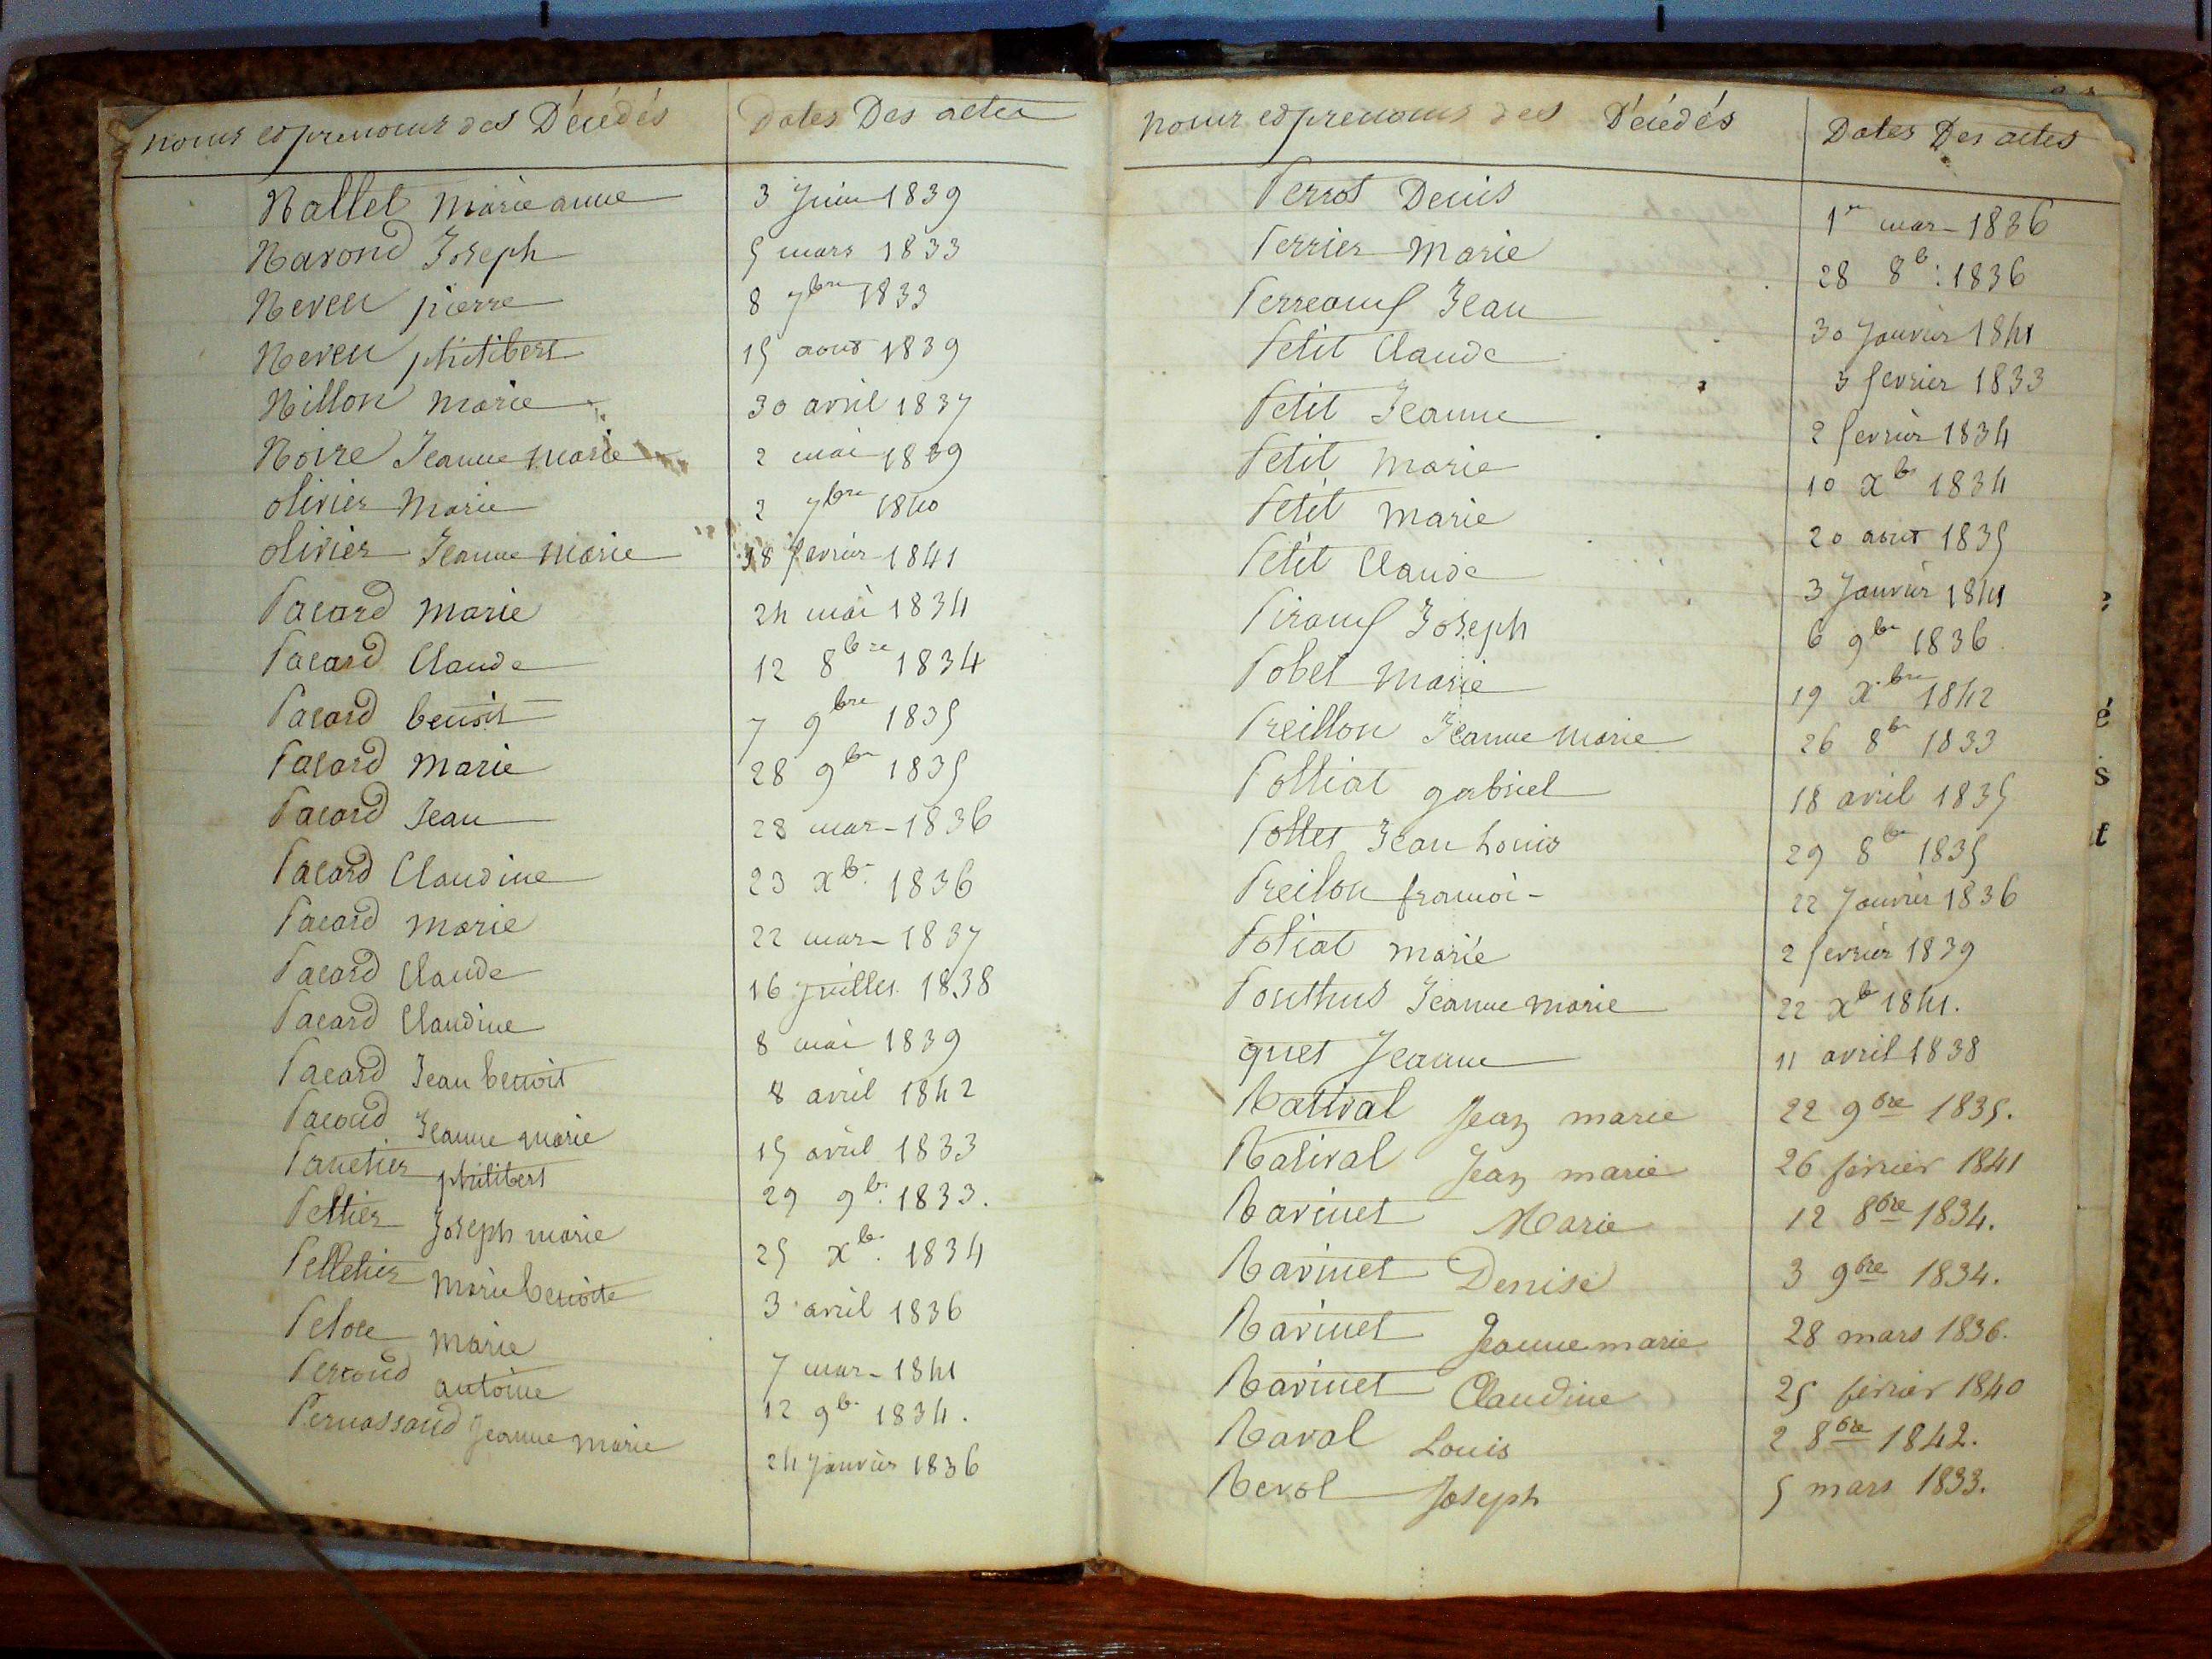 noms et prenoms des Décédés Dates Des actes
Nallet Marie anne 3 Juin 1839
Navond Joseph 5 mars 1833
Neveu pierre 8 7bre 1833
Neveu philibert 15 aout 1839
Nillon Marie 30 avril 1837
Noire Jeanne Marie 2 mai 1839
olivier Marie 2 7bre 1840
olivier Jeanne Marie 18 fevrier 1841
Pacard Marie 24 mai 1834
Pacard Claude 12 8bre 1834
Pacard benoit 7 9bre 1835
Pacard Marie 28 9br 1835
Pacard Jean 28 mar- 1836
Pacard Claudine 23 xbr 1836
Pacard Marie 22 mar- 1837
Pacard Claude 16 juillet 1838
Pacard Claudine 8 mai 1839
Pacard Jean benoit 8 avril 1842
Pacoud Jeanne Marie 15 avril 1833
Panetier philibert 29 9br 1833.
Peltier Joseph marie 25 xbr 1834
Pelletier Marie benoite 3 avril 1836
Peloce Marie 7 mar- 1841
Perroud antoine 12 9br 1834.
Pernassaud Jeanne Marie 24 Janvier 1836
noms et prenoms des Décédés Dates Des actes
Perrot Denis 1er mar- 1836
Perrier Marie 28 8b: 1836
Jean 30 Janvier 1841
Petit Claude 3 fevrier 1833
Petit Jeanne 2 fevrier 1834
Petit Marie 10 xbr 1834
Petit Marie 20 aout 1835
Petit Claude 3 Janvier 1841
Joseph 6 9br 1836
Pobel Marie 19 xbre 1842
Preillon Jeanne Marie 26 8br 1833
Polliat gabriel 18 avril 1835
Pollet Jean Louis 29 8br 1835
Preilon francoi- 22 Janvier 1836
Poliat Marie 2 fevrier 1839
Ponthus Jeanne Marie 22 xbr 1841.
quet Jeanne 11 avril 1838
Rativat Jean marie 22 9bre 1835.
Rativat Jean marie 26 février 1841
Ravinet Marie 12 8bre 1834.
Ravinet Denise 3 9bre 1834.
Ravinet Jeanne marie 28 mars 1836.
Ravinet Claudine 25 février 1840
Raval Louis 2 8bre 1842.
Revol Joseph 5 mars 1833.
é
s
t